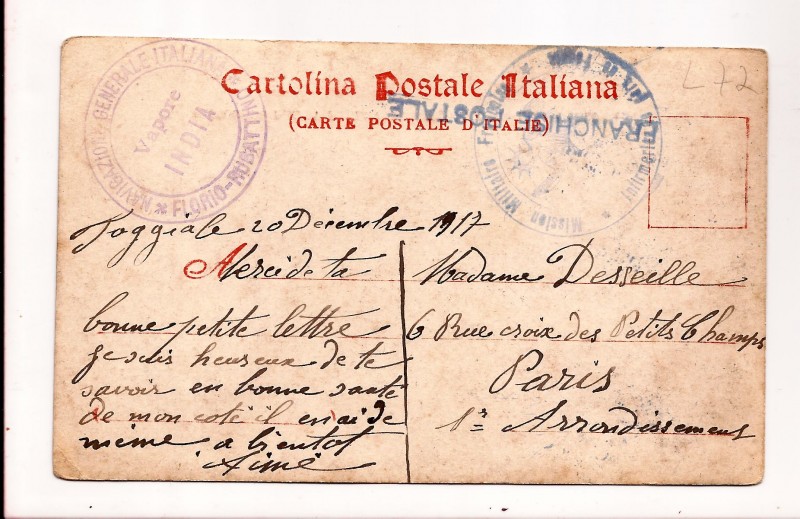 NAVIGAZIONE GENERALE ITALIANA
FLORIO-RUBATTINO
Vapore
INDIA
Cartolina Postale Italiana
(CARTE POSTALE D'ITALIE)
FRANCHISE
POSTALE
Mission Militaire
L 72
20 Décembre 1917
Merci de ta
bonne petite lettre
je suis heureux de te
savoir en bonne santé
de mon coté il en ai de
même a bientot
Aimé
Madame Desseille
6 Rue croix des Petits Champs
Paris
1r Arrondissement